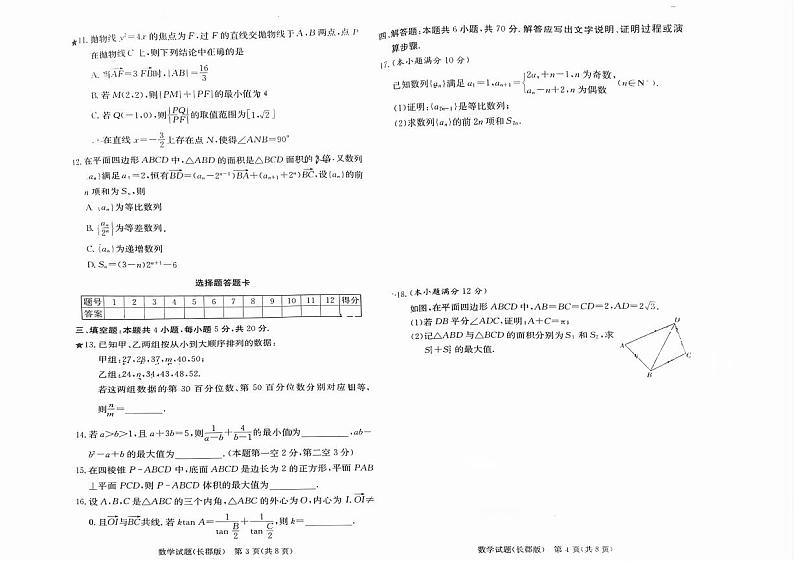 ★11. 抛物线 y²=4x 的焦点为 F,过 F 的直线交抛物线于 A,B 两点,点 P
在抛物线 C 上,则下列结论中正确的是
A. 当AF=3 FB时,|AB|=16/3
B. 若 M(2,2),则|PM|+|PF|的最小值为 4
C. 若 Q(-1,0),则|PQ|/|PF|的取值范围为[1,√2]
在直线 x=-3/2上存在点 N,使得∠ANB=90°
12. 在平面四边形 ABCD 中,△ABD 的面积是△BCD 面积的 倍,又数列
{aₙ}满足 a₁=2,恒有BD=(aₙ-2ⁿ⁻¹)BA+(aₙ₊₁+2ⁿ)BC,设{aₙ}的前
n 项和为 Sₙ,则
A. {aₙ}为等比数列
B. {aₙ/2ⁿ}为等差数列
C. {aₙ}为递增数列
D. Sₙ=(3-n)2ⁿ⁺¹-6
选择题答题卡
题号 1 2 3 4 5 6 7 8 9 10 11 12 得分
答案
三、填空题:本题共 4 小题,每小题 5 分,共 20 分.
★13. 已知甲、乙两组按从小到大顺序排列的数据:
甲组:27,28,37,m,40,50;
乙组:24,n,34,43,48,52.
若这两组数据的第 30 百分位数、第 50 百分位数分别对应相等,
则n/m=________.
14. 若 a>b>1,且 a+3b=5,则1/(a-b)+4/(b-1)的最小值为________,ab-
b²-a+b 的最大值为________.(本题第一空 2 分,第二空 3 分)
15. 在四棱锥 P-ABCD 中,底面 ABCD 是边长为 2 的正方形,平面 PAB
⊥平面 PCD,则 P-ABCD 体积的最大值为________.
16. 设 A,B,C 是△ABC 的三个内角,△ABC 的外心为 O,内心为 I.OI≠
0.且OI与BC共线.若 ktan A=1/tan B/2+1/tan C/2,则 k=________.
数学试题(长郡版) 第 3 页(共 8 页)
四、解答题:本题共 6 小题,共 70 分.解答应写出文字说明、证明过程或演
算步骤.
17. (本小题满分 10 分)
已知数列{aₙ}满足 a₁=1,aₙ₊₁={2aₙ+n-1,n 为奇数, aₙ-n+2,n 为偶数 (n∈N*).
(1)证明:{a₂ₙ₋₁}是等比数列;
(2)求数列{aₙ}的前 2n 项和 S₂ₙ.
18. (本小题满分 12 分)
如图,在平面四边形 ABCD 中,AB=BC=CD=2,AD=2√3.
(1)若 DB 平分∠ADC,证明:A+C=π;
(2)记△ABD 与△BCD 的面积分别为 S₁ 和 S₂,求
S₁²+S₂² 的最大值.
A
B
C
D
数学试题(长郡版) 第 4 页(共 8 页)